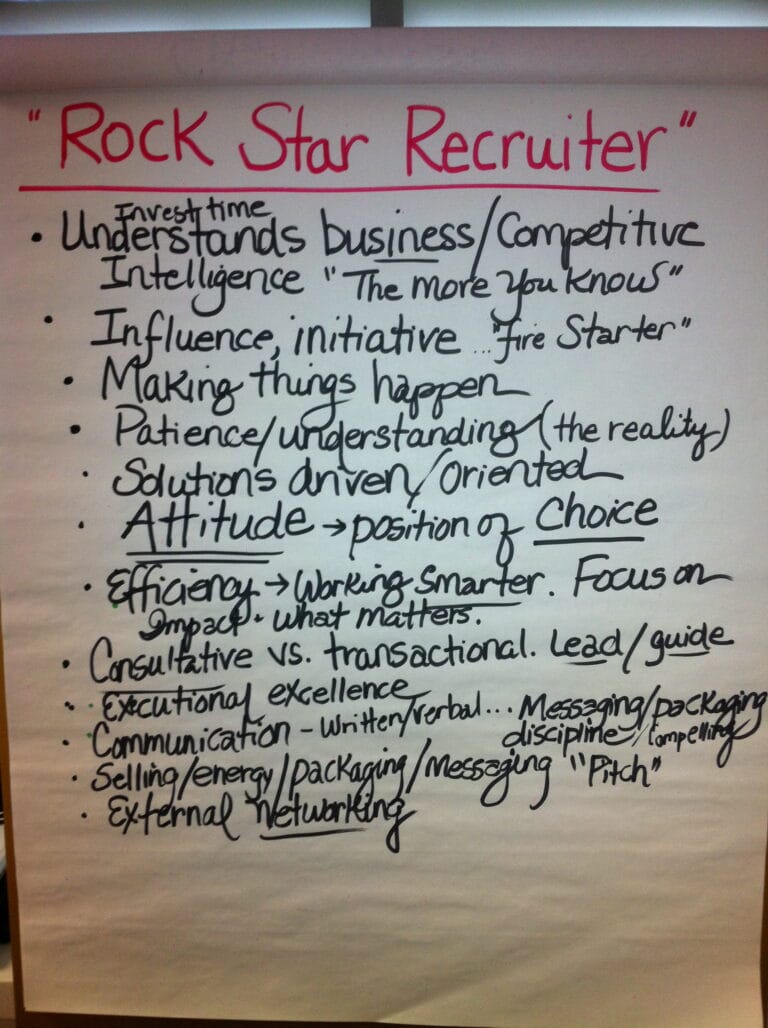 "Rock Star Recruiter"
Invest time
• Understands business/Competitive
Intelligence "The more you know"
• Influence, initiative ... "fire Starter"
• Making things happen
• Patience/understanding (the reality)
• Solutions driven/oriented
• Attitude → position of Choice
• Efficiency → Working Smarter. Focus on
Impact • What matters.
• Consultative vs. transactional. Lead/guide
• Executional excellence
• Communication - written/verbal... Messaging/packaging
discipline/Compelling
• Selling/energy/packaging/messaging "Pitch"
• External networking